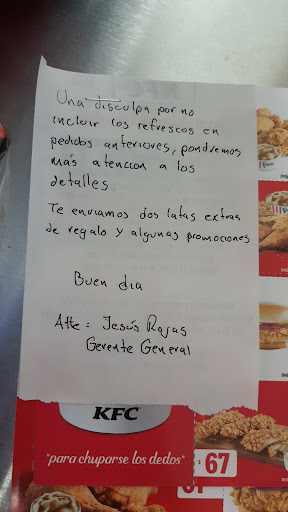 Una disculpa por no
incluir los refrescos en
pedidos anteriores, pondremos
más atencion a los
detalles.
Te enviamos dos latas extras
de regalo y algunas promociones
Buen dia
Atte: Jesús Rojas
Gerente General
KFC
"para chuparse los dedos"
67